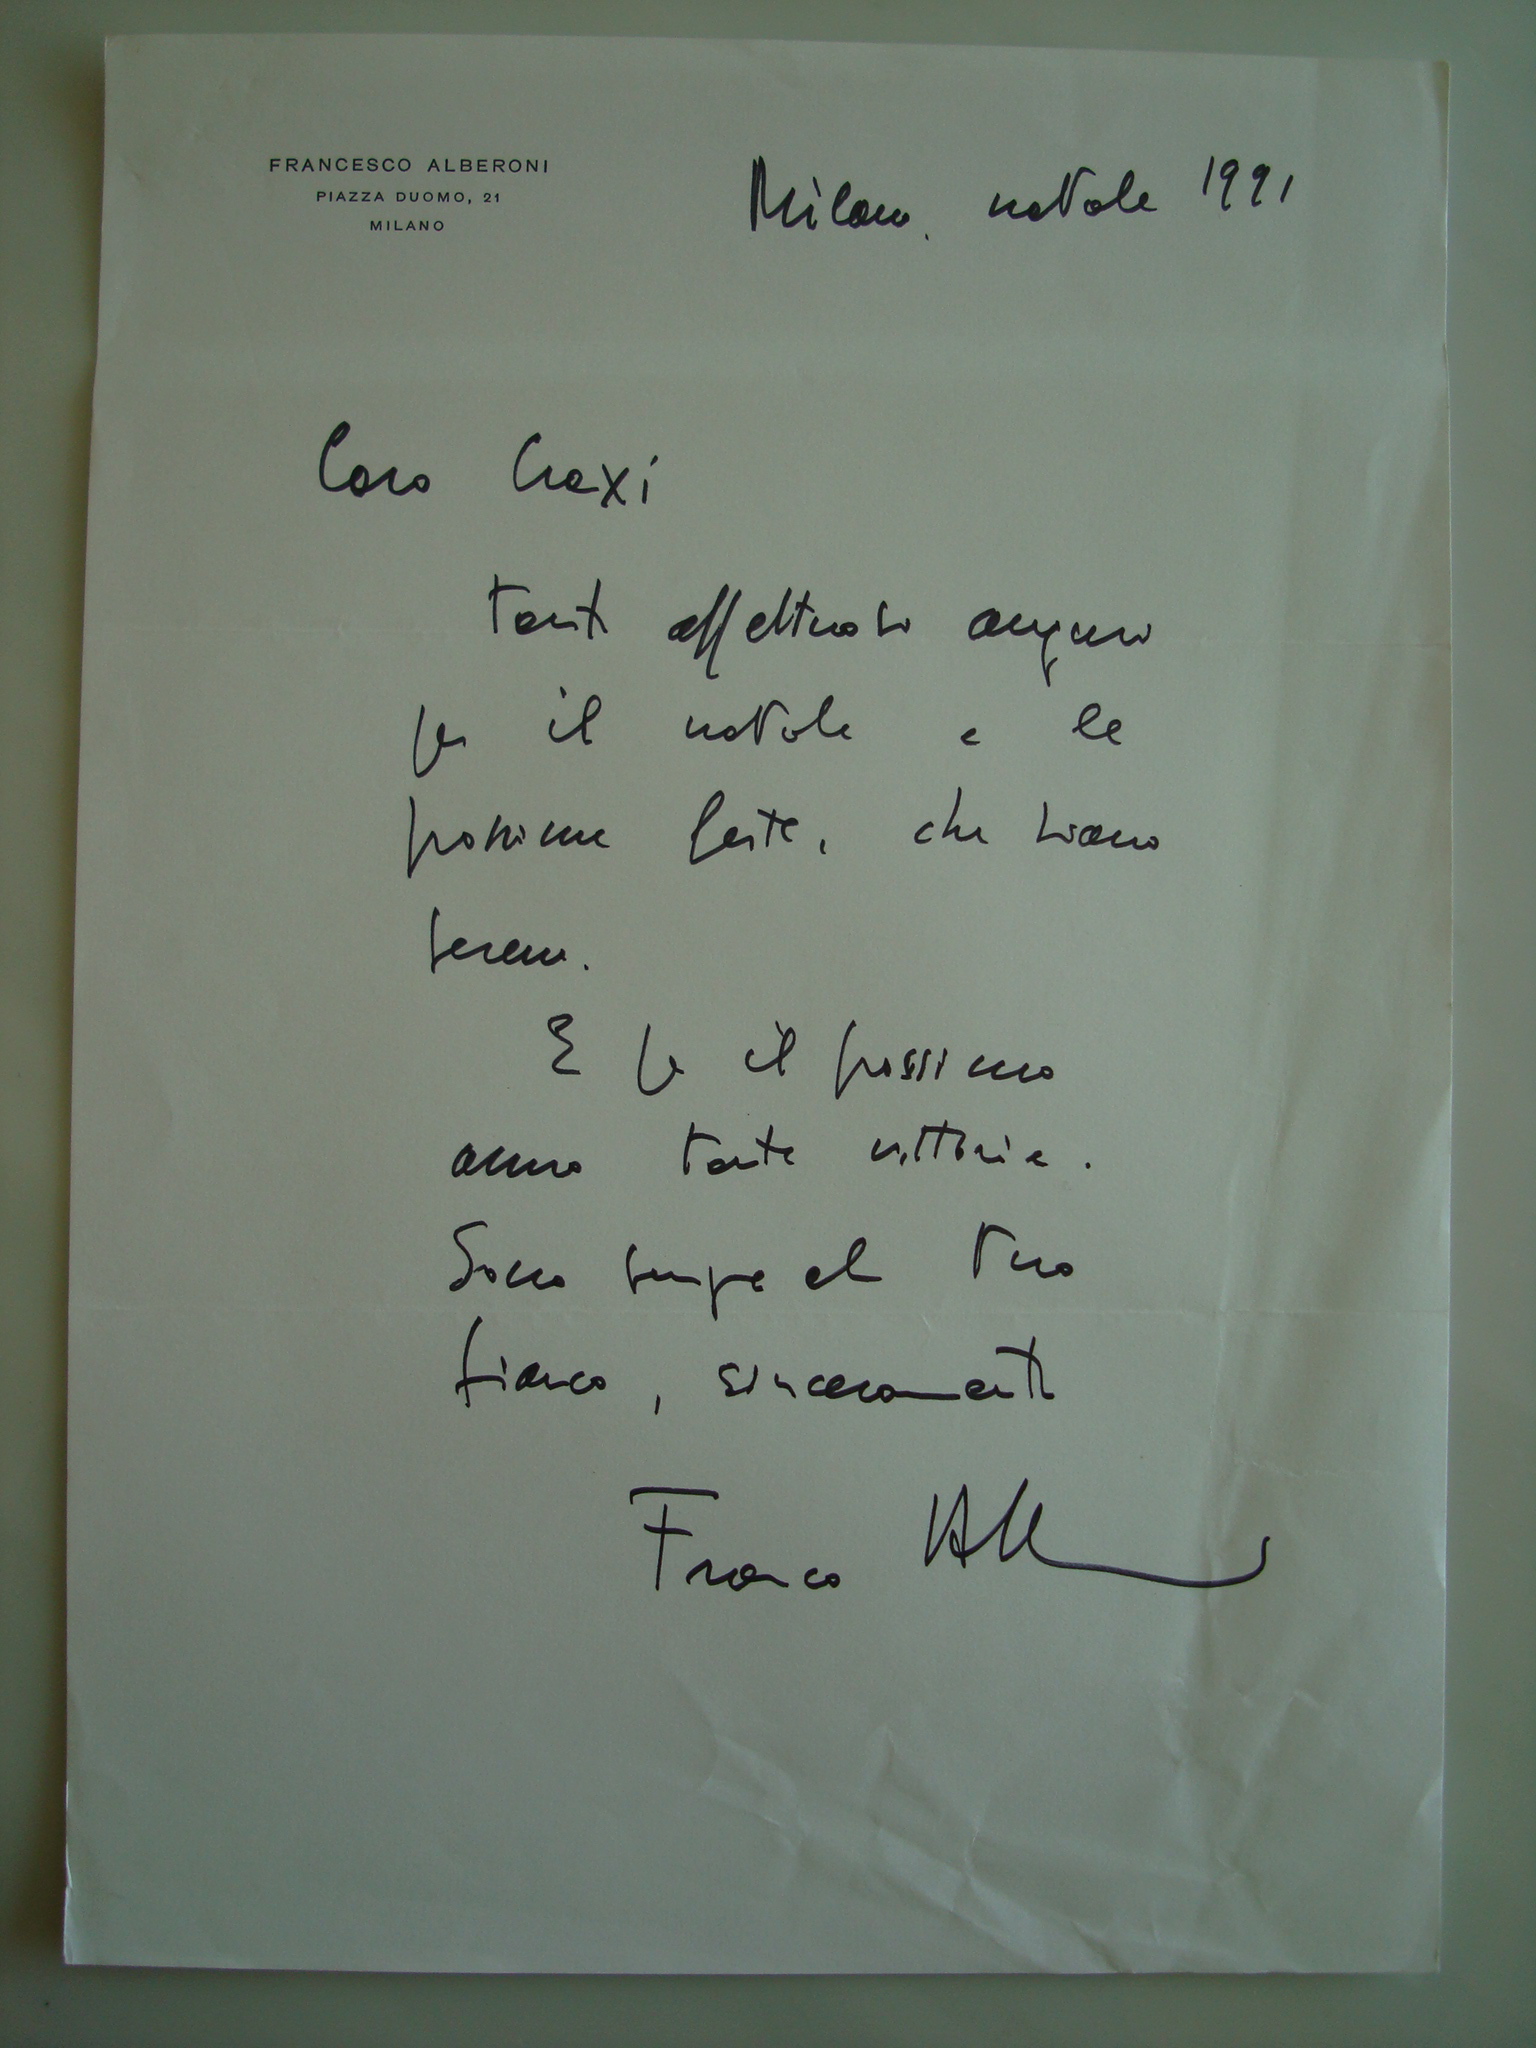 FRANCESCO ALBERONI
PIAZZA DUOMO, 21
MILANO
Milano, natale 1991
Caro Craxi
tanti affettuosi auguri
per il natale e le
prossime feste, che siano
serene.
E per il prossimo
anno tante vittorie.
Sono sempre al tuo
fianco, sinceramente
Franco Alberoni